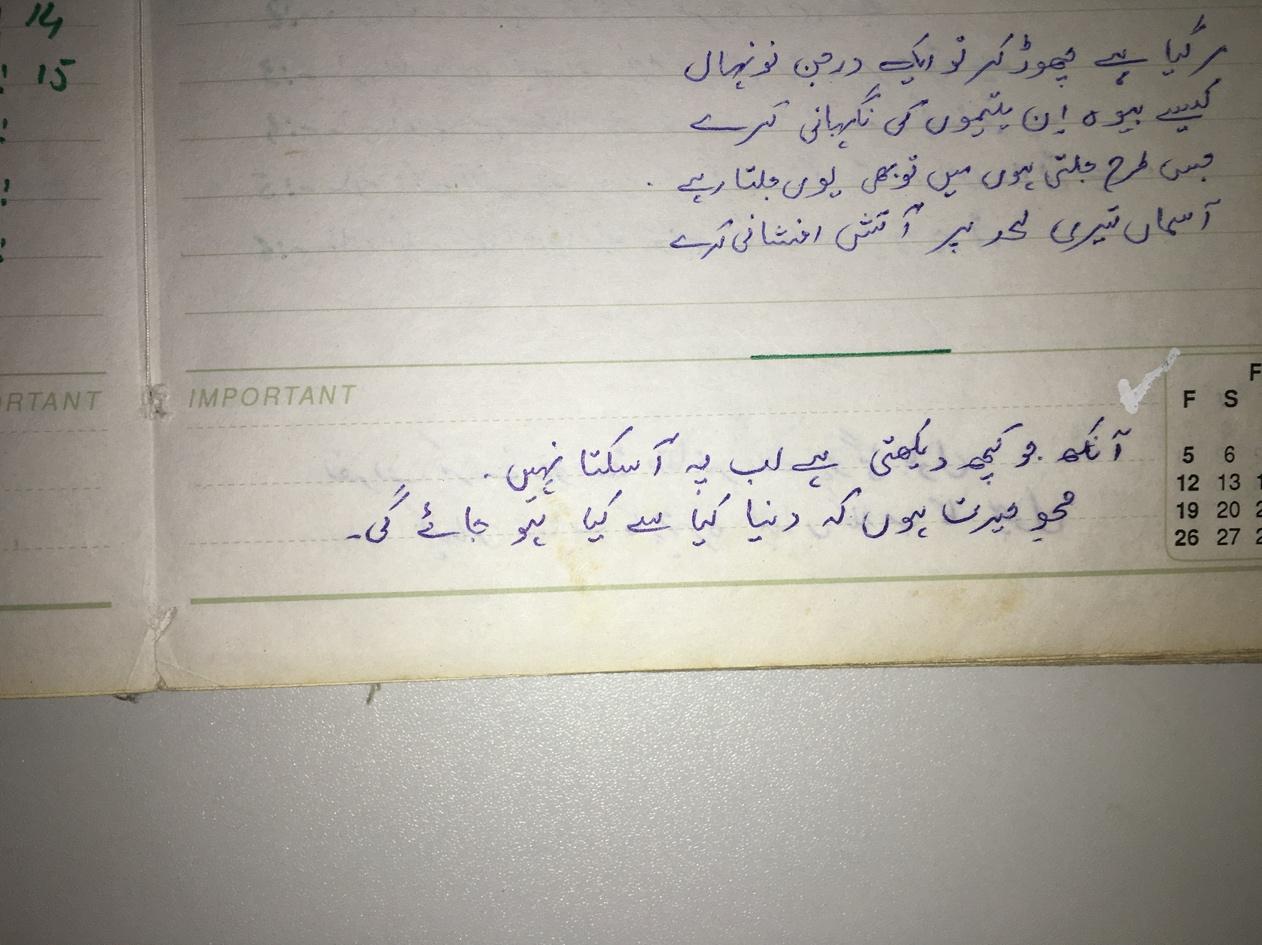 14
15
مر گیا ہے چھوڑ کر تو ایک درجن نونہال
کیسے بیوہ اِن یتیموں کی نگہبانی کرے
جس طرح جلتی ہوں میں تو بھی یوں جلتا رہے .
آسماں تیری لحد پر آتش افشانی کرے
ORTANT
IMPORTANT
F
F S
5 6
12 13 1
19 20 2
26 27 2
آنکھ جو کچھ دیکھتی ہے لب پہ آ سکتا نہیں .
محوِ حیرت ہوں کہ دنیا کیا سے کیا ہو جائے گی۔